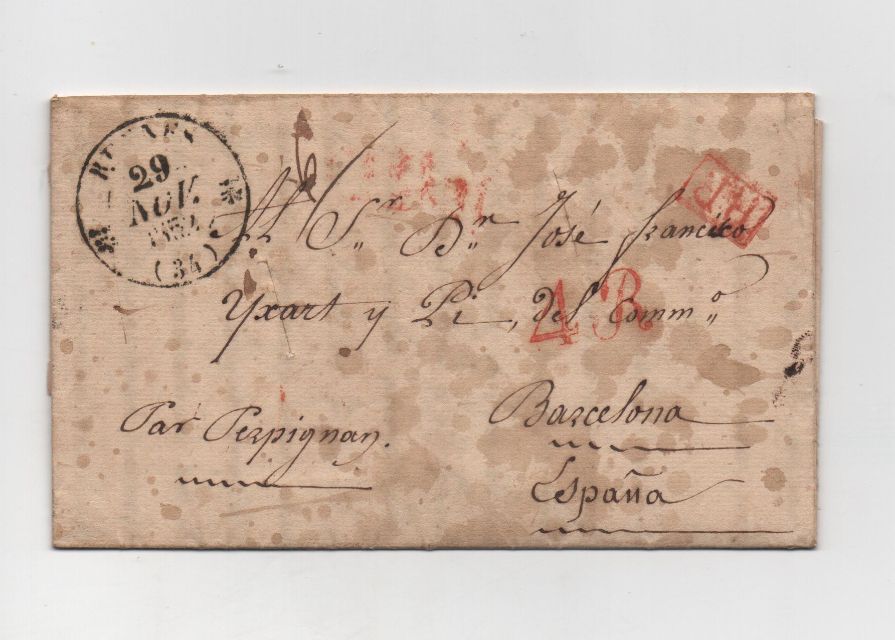 RENNES
29
NOV.
1832
(34)
Al Sr. Dn. José Francisco
Yxart y Pi, del Comm.o
4 R
Par Perpignan.
Barcelona
España